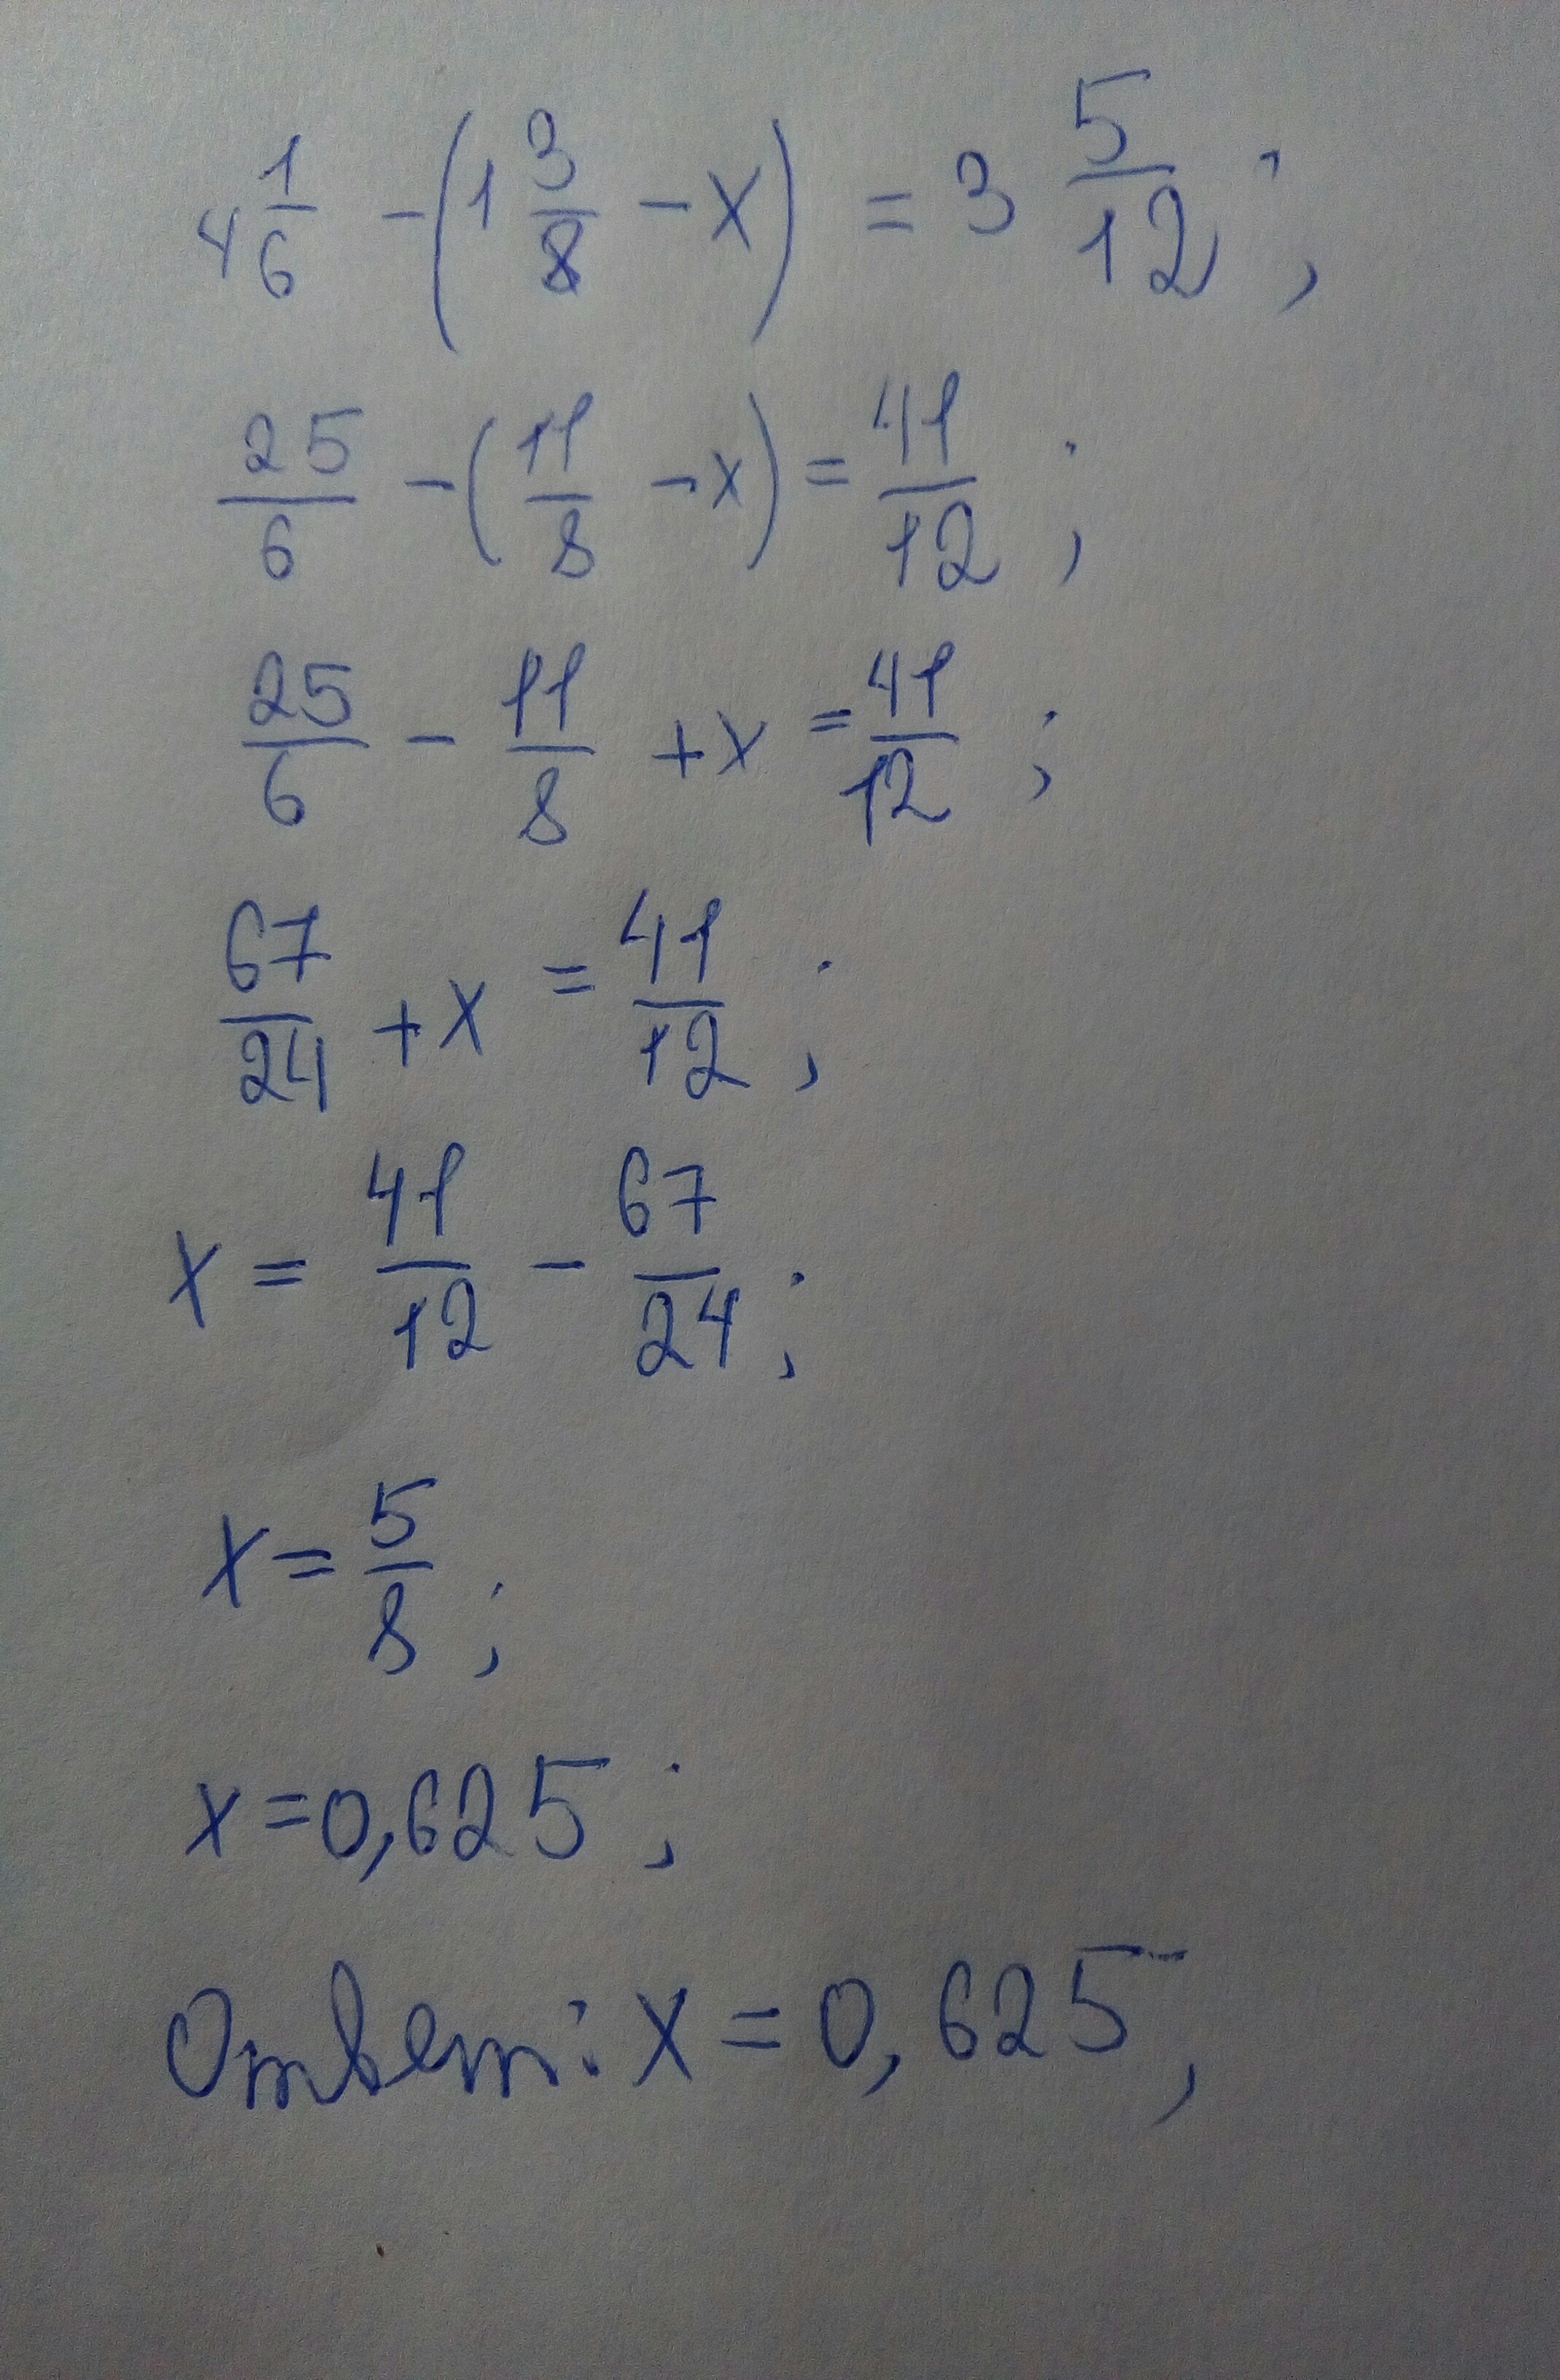 4 1/6 - (1 3/8 - x) = 3 5/12 ;
25/6 - (11/8 - x) = 41/12 ;
25/6 - 11/8 + x = 41/12 ;
67/24 + x = 41/12 ;
x = 41/12 - 67/24 ;
x = 5/8 ;
x = 0,625 ;
Ответ: x = 0,625,